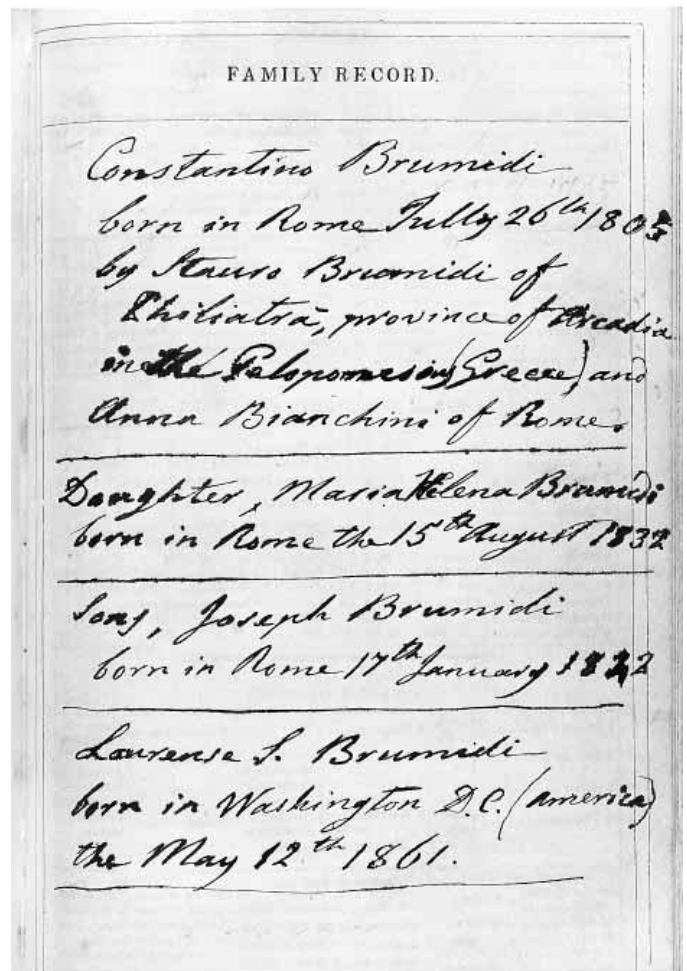 FAMILY RECORD.
Constantino Brumidi
born in Rome Jully 26th 1805
by Stauro Brumidi of
Philiatrà, province of Arcadia
in the Peloponesus (Greece) and
Anna Bianchini of Rome.
Daughter, Maria Elena Brumidi
born in Rome the 15th August 1832
Sons, Joseph Brumidi
born in Rome 17th January 1842
Laurense S. Brumidi
born in Washington D.C. (america)
the May 12th 1861.